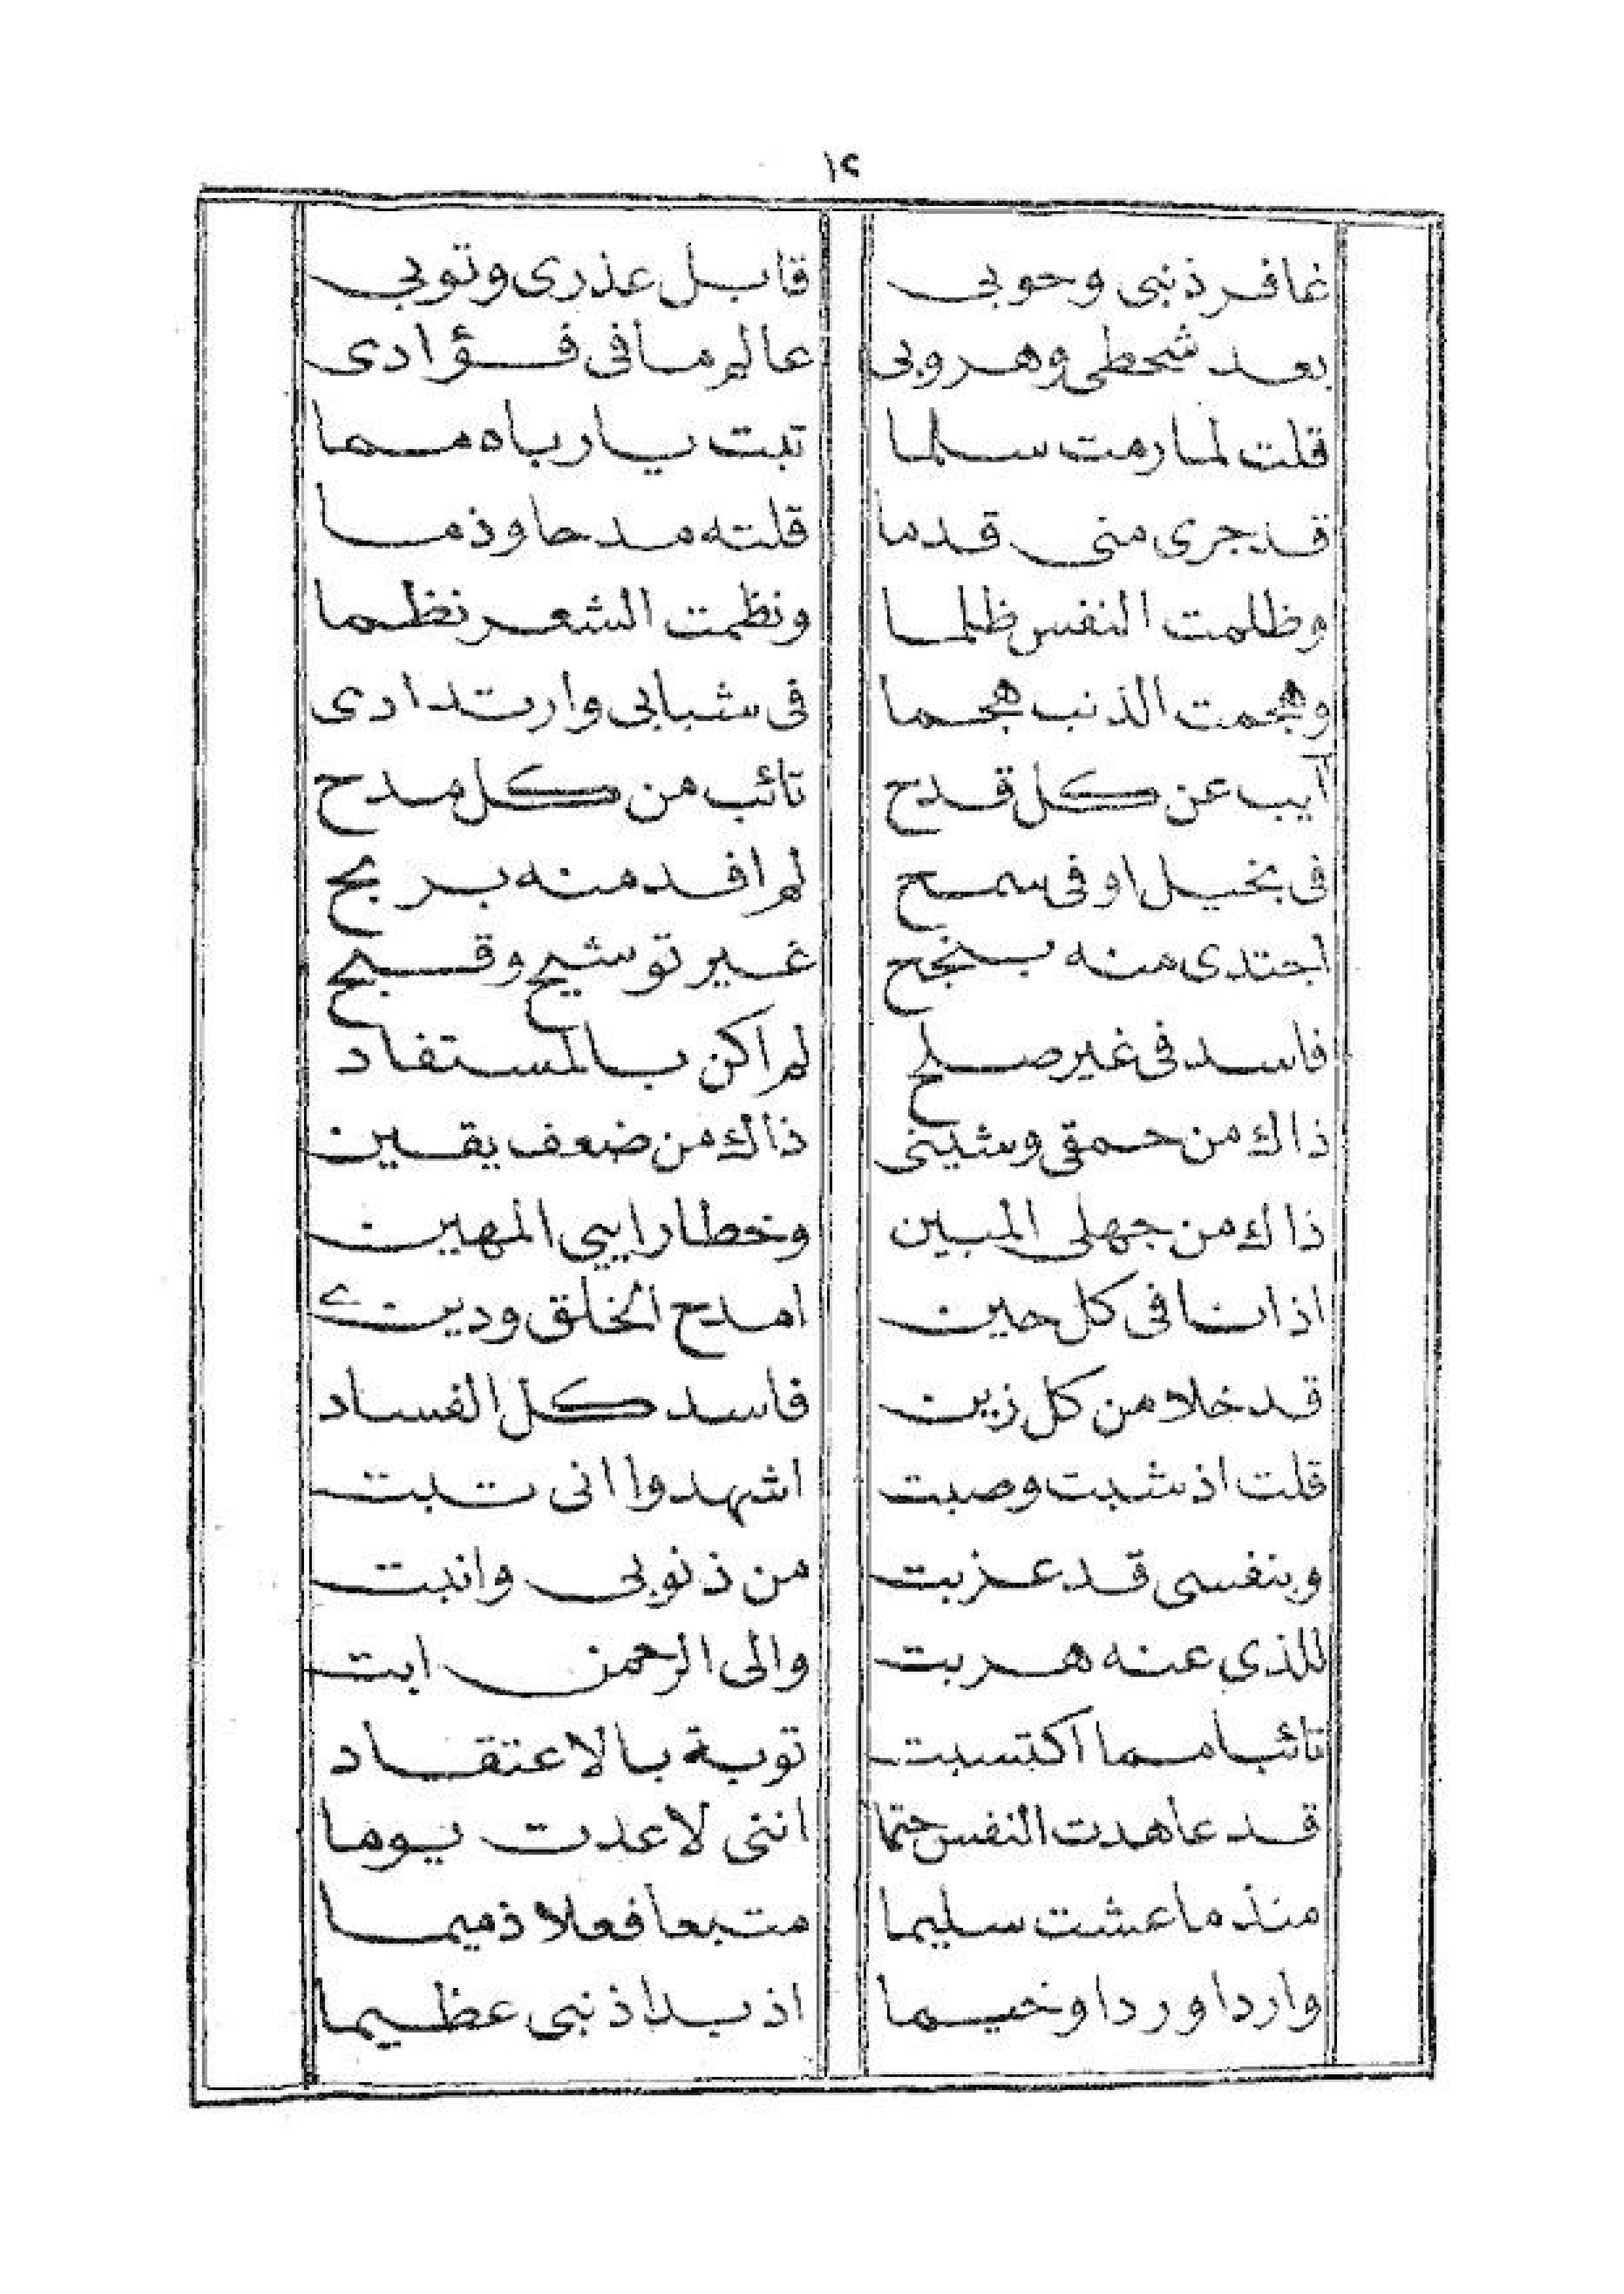 ١٢
غافر ذنبى وحوبى قابل عذرى وتوبى
بعد شحطى وهروبى عالم مافى فؤادى
قلت لما رمت سلما تبت يارباه مما
قد جرى منى قدما قلته مدحا وذما
وظلمت النفس ظلما ونظمت الشعر نظما
وهجمت الذنب هجما فى شبابى وارتدادى
آيب عن كل قدح تائب من كل مدح
فى بخيل او فى سمح لم افد منه بربح
اجتدى منه بنجح غير توشيح وقبح
فاسد فى غير صلح لم اكن بالمستفاد
ذاك من حمقى وشينى ذاك من ضعف يقين
ذاك من جهلى المبين وخطا رايي المهين
اذ انا فى كل حين امدح الخلق ودينى
قد خلا من كل زين فاسد كل الفساد
قلت اذ شبت وصبت اشهدوا انى تبت
وبنفسى قد عزبت من ذنوبى وانبت
للذى عنه هربت والى الرحمن ابت
تائبا مما اكتسبت توبة بالاعتقاد
قد عاهدت النفس حتما اننى لاعدت يوما
منذ ماعشت سليما متبعا فعلا ذميما
واردا وردا وخيما اذ بدا ذنبى عظيما